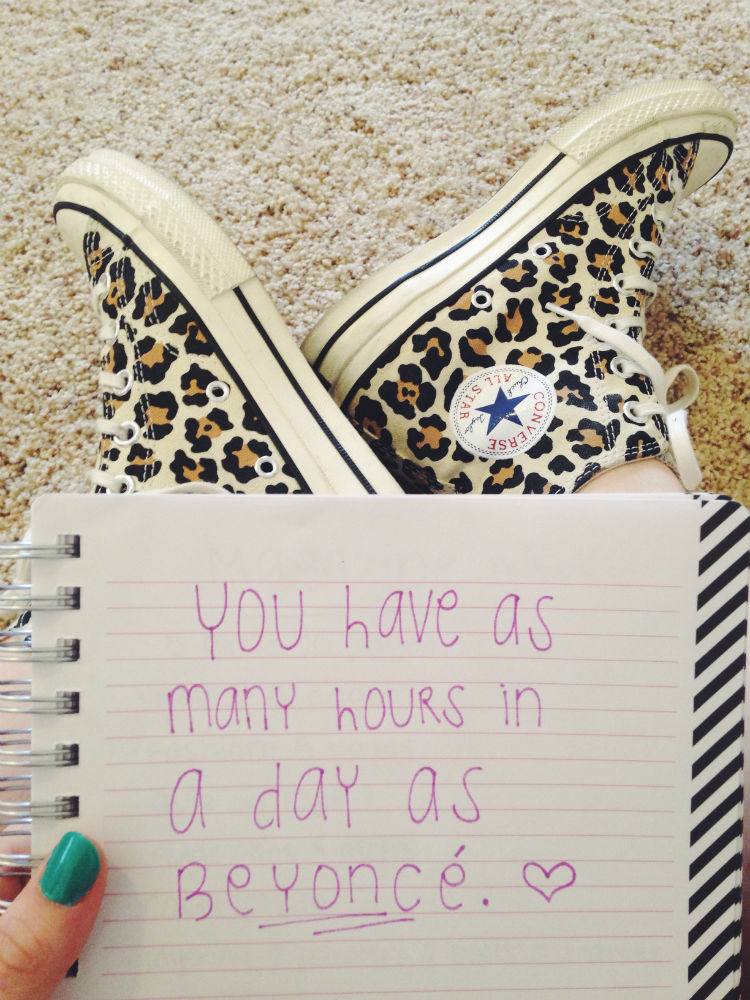 CONVERSE
ALL STAR
Chuck Taylor
You have as
many hours in
a day as
Beyoncé. ♡